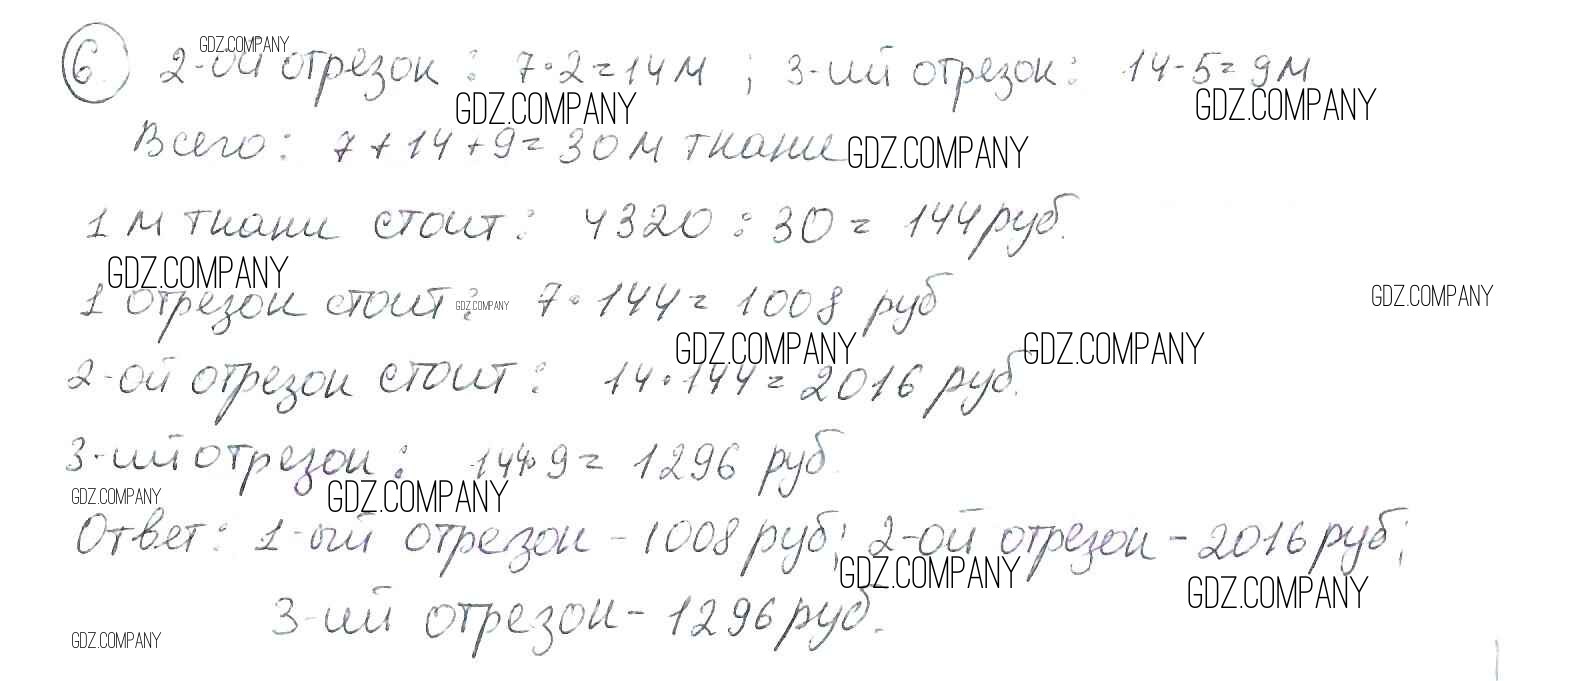 6. 2-ой отрезок : 7·2=14м ; 3-ий отрезок: 14-5=9м
GDZ.COMPANY
GDZ.COMPANY GDZ.COMPANY
Всего: 7+14+9=30м ткани GDZ.COMPANY
1 м ткани стоит: 4320 : 30 = 144руб.
GDZ.COMPANY
1 отрезок стоит: 7·144=1008 руб
GDZ.COMPANY GDZ.COMPANY
GDZ.COMPANY GDZ.COMPANY
2-ой отрезок стоит: 14·144=2016 руб.
3-ий отрезок: 144·9= 1296 руб
GDZ.COMPANY GDZ.COMPANY
Ответ: 1-ый отрезок - 1008 руб; 2-ой отрезок - 2016 руб;
GDZ.COMPANY GDZ.COMPANY
3-ий отрезок - 1296 руб.
GDZ.COMPANY